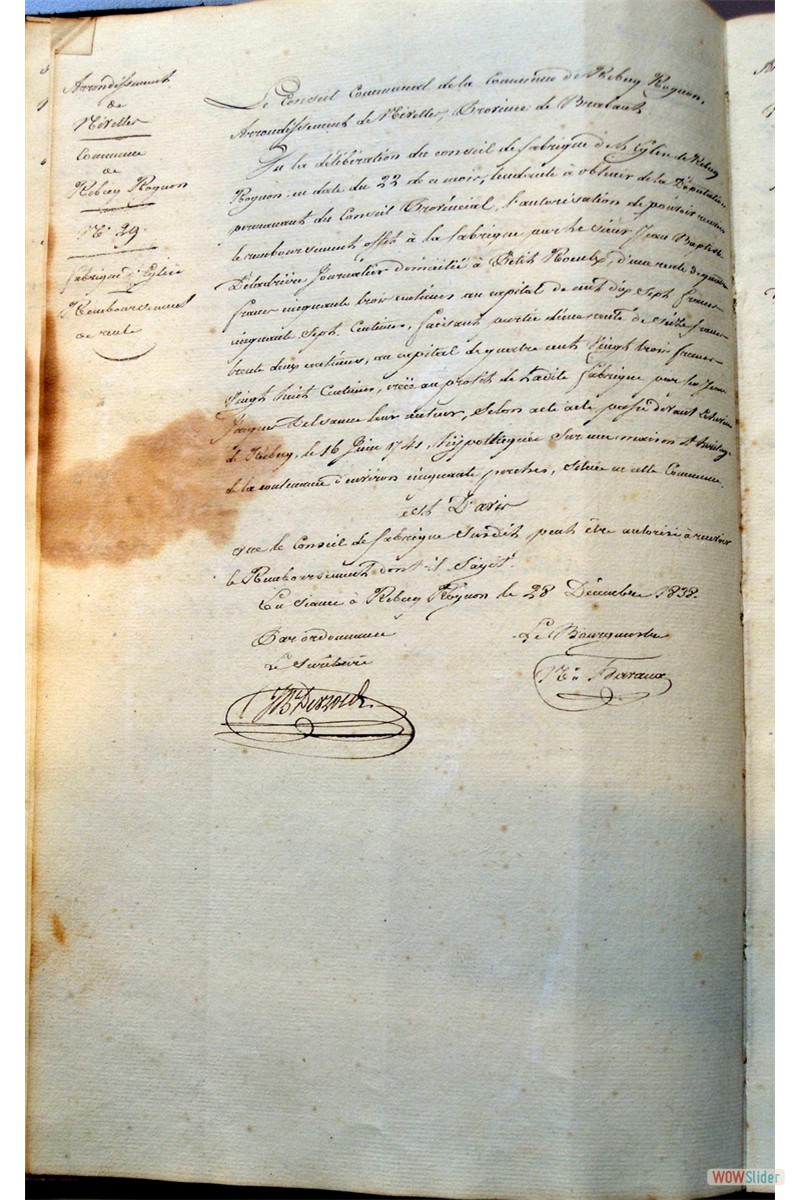 Arrondissement
de
Nivelles
Commune
de
Rebecq Rognon
N° 29.
fabrique d'Eglise
Remboursement
de rente
Le Conseil Communal de la Commune de Rebecq Rognon,
Arrondissement de Nivelles, Province de Brabant.
Vu la délibération du conseil de fabrique de l'Eglise de Rebecq
Rognon en date du 22 de ce mois, tendante à obtenir de la Députation
permanant du Conseil Provincial, l'autorisation de pouvoir recevoir
le remboursement offert à la fabrique par le sieur Jean Baptiste
Deladrière Journalier domicilié à Petit Roeulx, d'une rente de quatre
francs cinquante trois centimes au capital de cent dix Sept francs
cinquante Sept Centimes, faisant partie d'une rente de seize francs
trente deux centimes, au capital de quatre cent Vingt trois francs
Vingt huit Centimes, créée au profit de ladite fabrique par Jean
Jacques leur auteur, Selon acte acte passé devant
de Rebecq, le 16 Juin 1741, hÿpothéquée Sur une maison &
de la contenance d'environ cinquante perches, Située en cette Commune.
est D'avis
que le Conseil de fabrique Susdit, peut être autorisé à recevoir
le Remboursement dont il S'agit.
En Séance à Rebecq Rognon le 28 Décembre 1838.
Par ordonnance Le Bourgmestre
Le Secrétaire